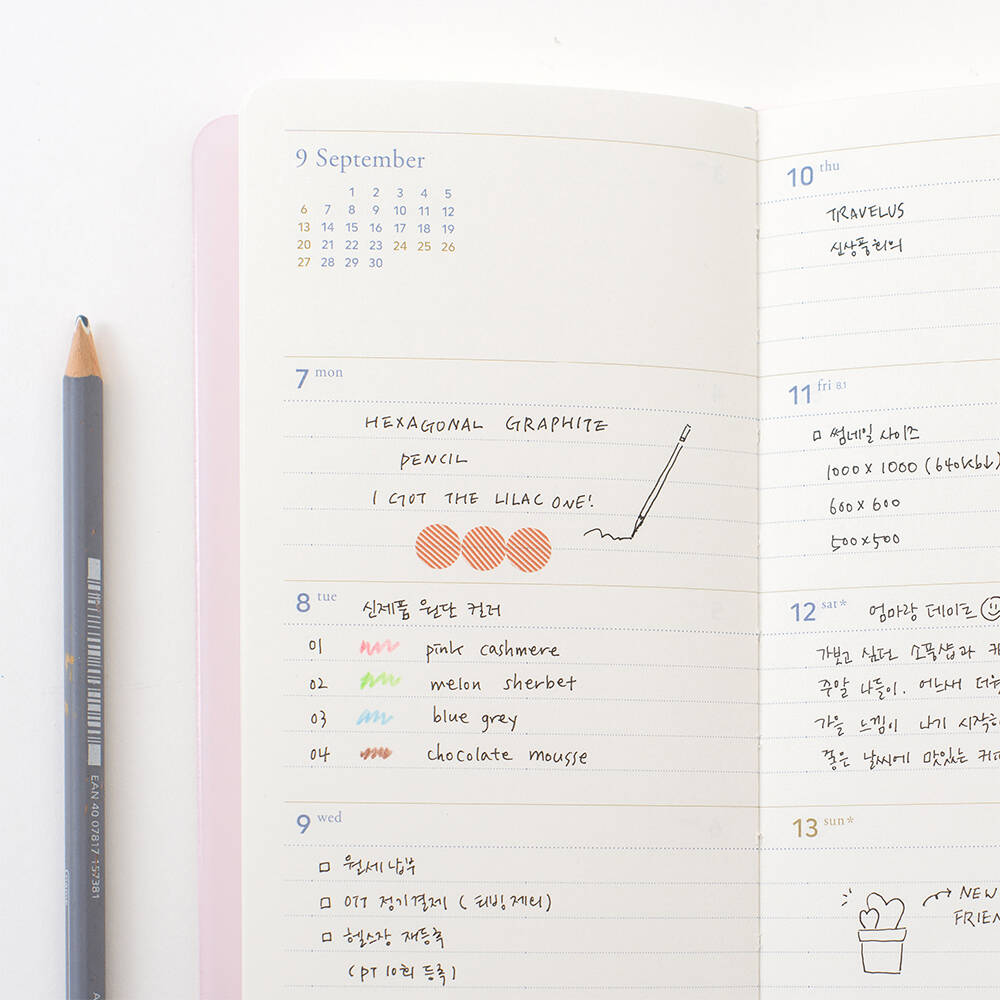 9 September
1 2 3 4 5
6 7 8 9 10 11 12
13 14 15 16 17 18 19
20 21 22 23 24 25 26
27 28 29 30
7 mon
HEXAGONAL GRAPHITE
PENCIL
I GOT THE LILAC ONE!
8 tue 신제품 원단 컬러
01 pink cashmere
02 melon sherbet
03 blue grey
04 chocolate mousse
9 wed
월세 납부
OTT 정기결제 (티빙 제외)
헬스장 재등록
(PT 10회 등록)
10 thu
TRAVELUS
신상품회의
11 fri 8.1
썸네일 사이즈
1000 x 1000 (640kb↓)
600 x 600
500 x 500
12 sat* 엄마랑 데이트
가보고 싶던 소품샵과
주말 나들이. 어느새
가을 느낌이 나기
좋은 날씨에 맛있는
13 sun*
NEW
FRIEN
EAN 40 07817 157381